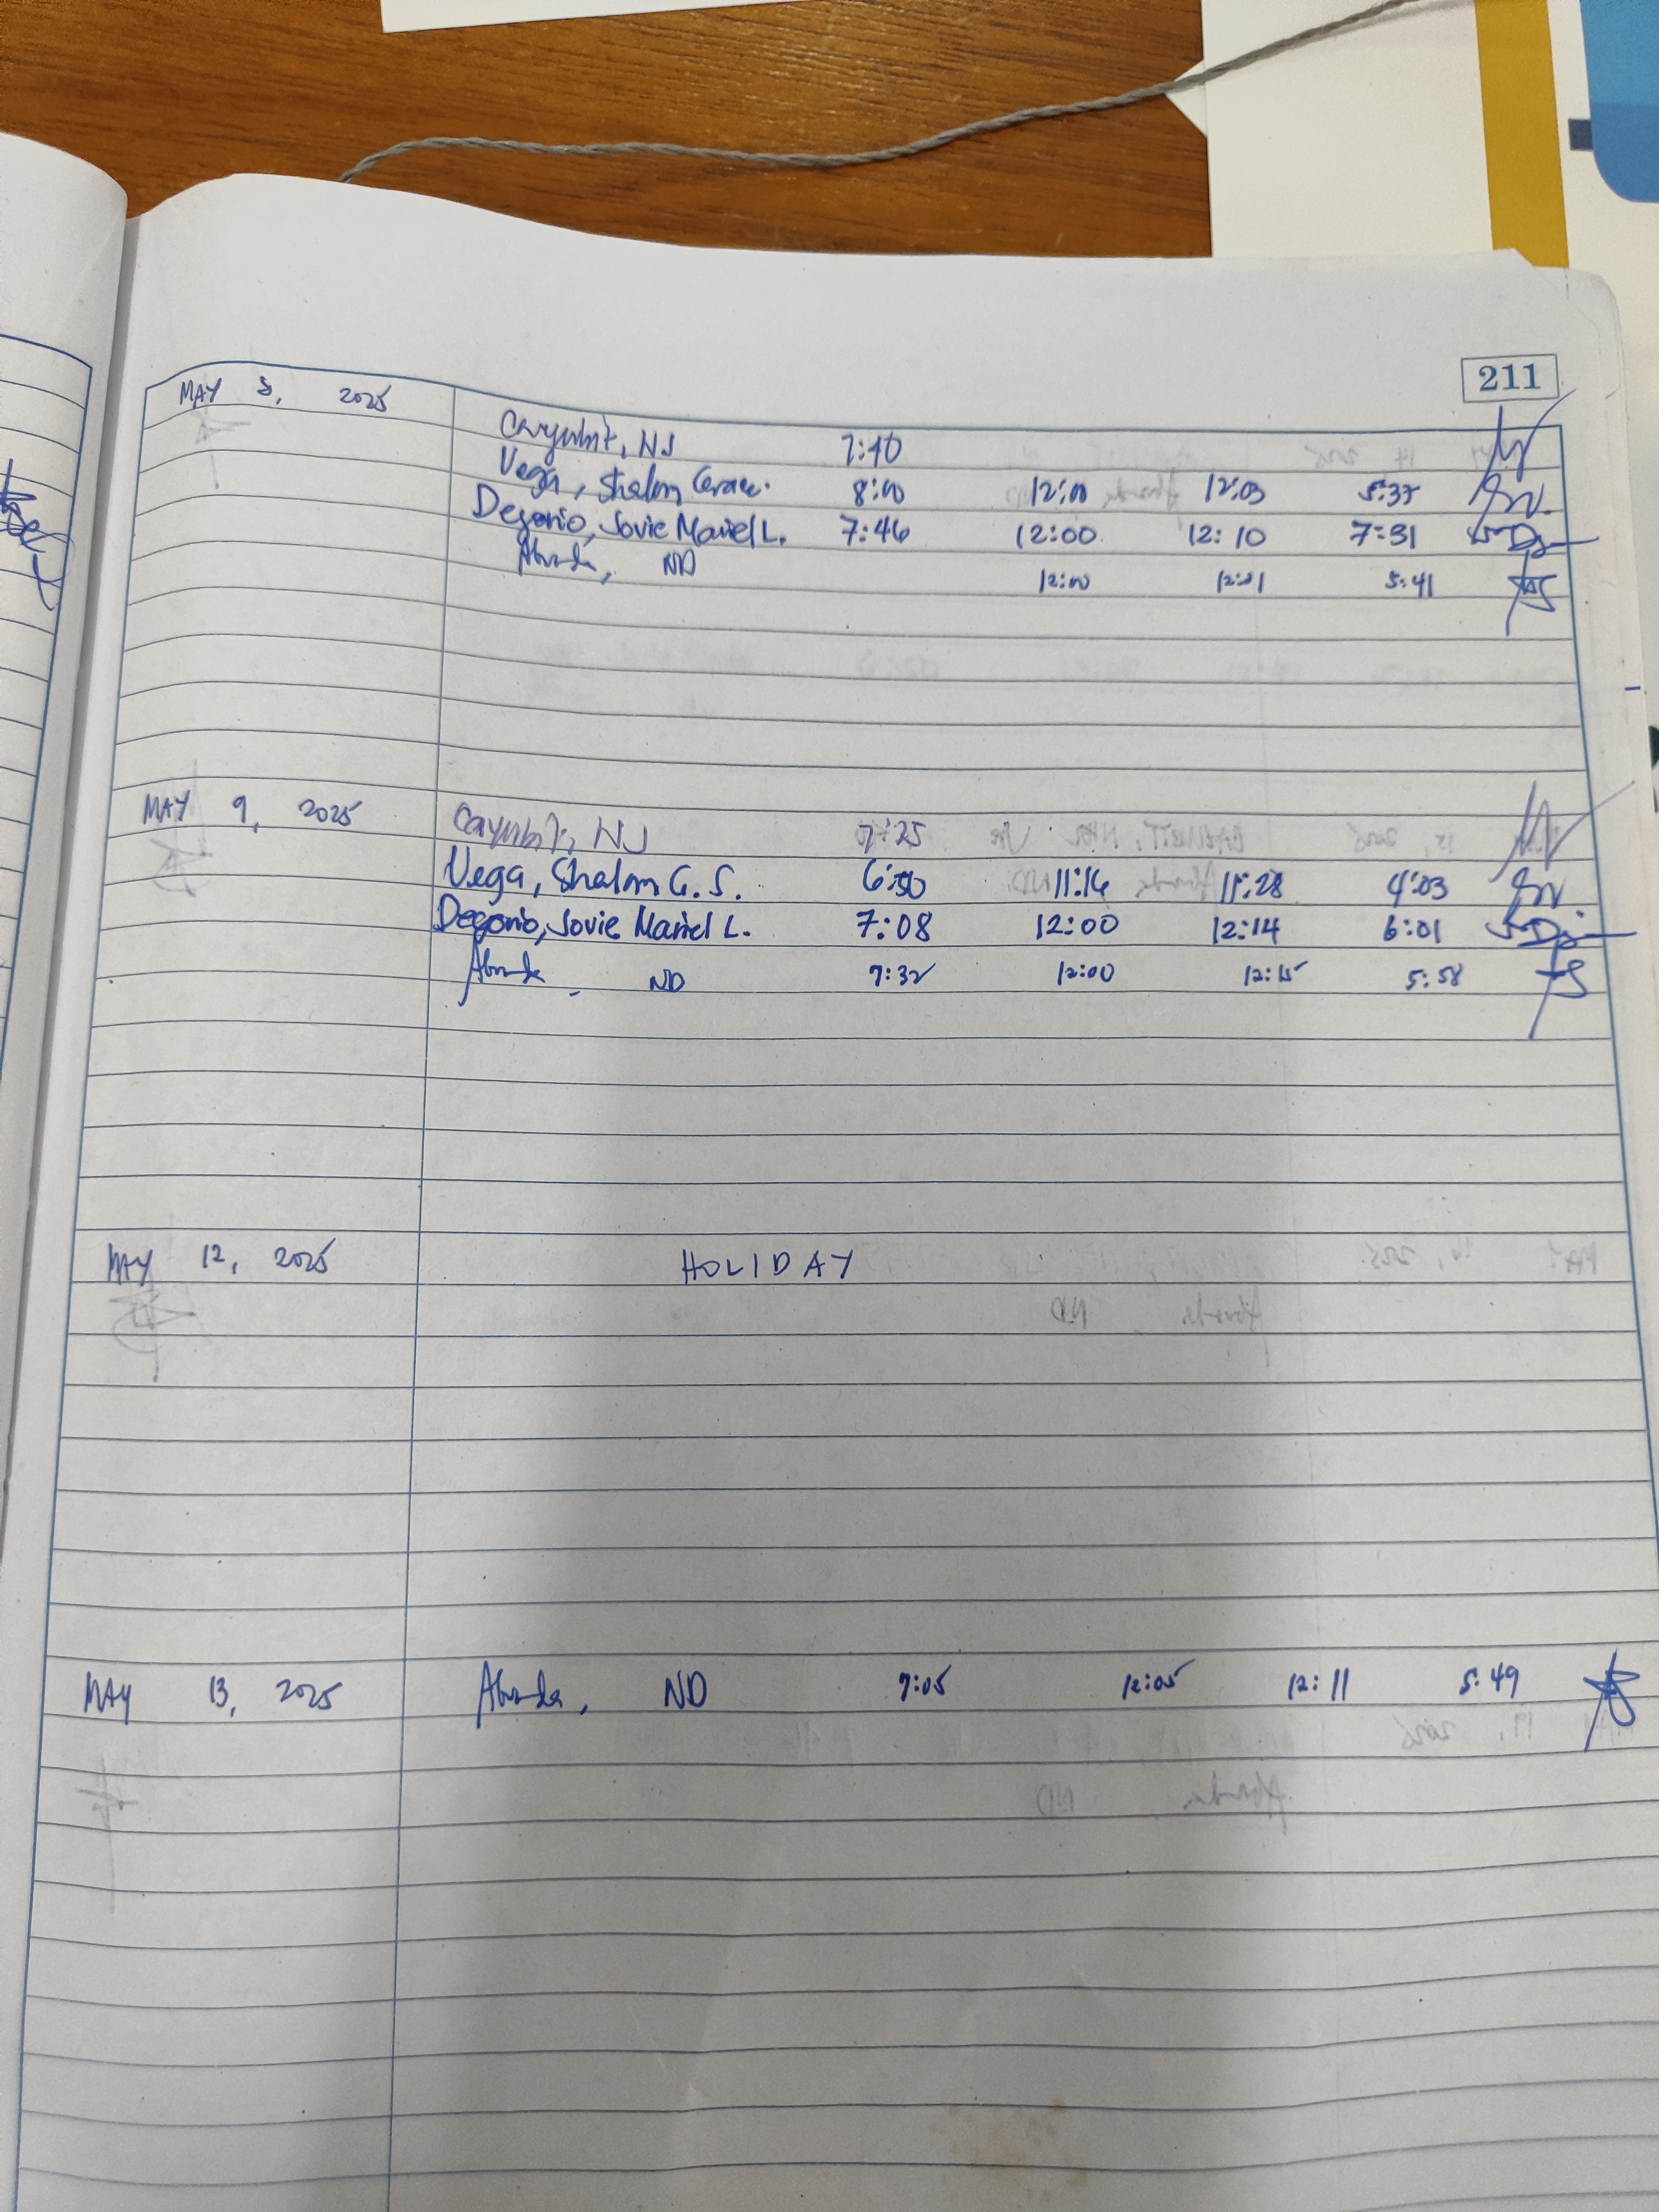 211
MAY 8, 2025
Cayubit, NJ 7:40
Vega, Shalom Grace. 8:00 12:00 12:03 5:37
Degorio, Jovie Mariel L. 7:46 12:00 12:10 7:31
Abunda, ND 12:00 12:01 5:41
MAY 9, 2025 Cayubit, NJ 7:25
Vega, Shalom G. S. 6:50 11:16 11:28 4:03
Degorio, Jovie Mariel L. 7:08 12:00 12:14 6:01
Abunda, ND 7:32 12:00 12:15 5:58
MAY 12, 2025 HOLIDAY
MAY 13, 2025 Abunda, ND 7:05 12:05 12:11 5:49